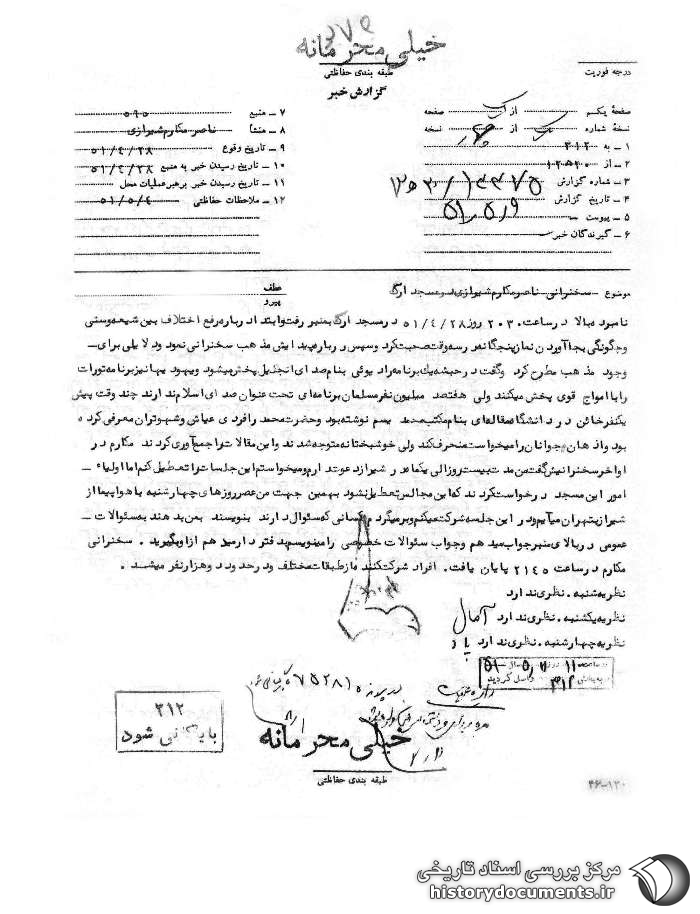 خیلی محرمانه
طبقه بندی حفاظتی
گزارش خبر
درجه فوریت
صفحهٔ یکم از صفحه
نسخهٔ شماره از نسخه
۱ ـ به ۳۱۲
۲ ـ از
۳ ـ شماره گزارش
۴ ـ تاریخ گزارش ۵۱٫۵٫۹
۵ ـ پیوست
۶ ـ گیرندگان خبر
۷ ـ منبع ۵۹۵
۸ ـ منشأ ناصر مکارم شیرازی
۹ ـ تاریخ وقوع ۵۱/۴/۲۸
۱۰ ـ تاریخ رسیدن خبر به منبع ۵۱/۴/۲۸
۱۱ ـ تاریخ رسیدن خبر برهبر عملیات محل
۱۲ ـ ملاحظات حفاظتی ۵۱/۵/۴
موضوع ـ سخنرانی ناصر مکارم شیرازی در مسجد ارک
عطف
پیرو
نامبرده بالا در ساعت ۲۰۳۰ روز ۵۱/۴/۲۸ در مسجد ارک بمنبر رفت و ابتدا درباره رفع اختلاف بین شیعه و سنی
و چگونگی بجا آوردن نماز پنجگانه در سه وقت صحبت کرد و سپس درباره پیدایش مذهب سخنرانی نمود و دلایلی برای ـ
وجود مذهب مطرح کرد و گفت در حبشه یک برنامه رادیوئی بنام صدای انجیل پخش میشود و یهود یها نیز برنامه تورات
را با امواج قوی پخش میکنند ولی هفتصد میلیون نفر مسلمان برنامه‌ای تحت عنوان صدای اسلام ندارند چند وقت پیش
یکنفر خائن در دانشگاه مقاله‌ای بنام مکتب محمد بسم نوشته بود و حضرت محمد را فردی عیاش و شهوتران معرفی کرده
بود و اذهان جوانان را میخواست منحرف کند ولی خوشبختانه متوجه شدند و این مقالات را جمع آوری کردند مکارم در
اواخر سخنرانیش گفت من مدت بیست روز الی یکماه در شیراز دعوت دارم و میخواستم این جلسات را تعطیل کنم اما اولیاء ـ
امور این مسجد درخواست کردند که این مجالس تعطیل نشود بهمین جهت من عصر روزهای چهارشنبه با هواپیما از
شیراز بتهران میآیم و در این جلسه شرکت میکنم و برمیگردم کسانی که سئوال دارند بنویسند بمن بدهند به سئوالات ـ
عمومی در بالای منبر جواب میدهم و جواب سئوالات خصوصی را مینویسم بدفتر دارمیدهم از او بگیرید . سخنرانی
مکارم در ساعت ۲۱۴۵ پایان یافت . افراد شرکت کننده از طبقات مختلف و در حدود دو هزار نفر میشد .
نظریه شنبه . نظری ندارد
نظریه یکشنبه . نظری ندارد آمال
نظریه چهارشنبه . نظری ندارد
۳۱۲
بایگانی شود
خیلی محرمانه
طبقه بندی حفاظتی
۴۶-۱۳۰
مرکز بررسی اسناد تاریخی
historydocuments.ir